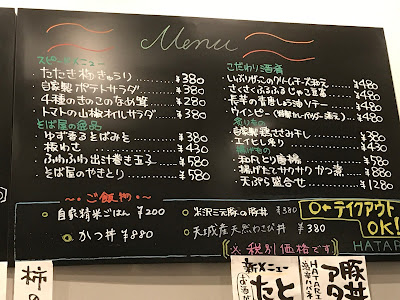 Menu
スピードメニュー
たたき梅きゅうり ¥380
自家製ポテトサラダ ¥380
4種のきのこのなめ茸 ¥280
トマトの山椒オイルサラダ ¥380
そば屋の逸品
ゆず香るそばみそ ¥380
板わさ ¥430
ふわふわ出汁巻き玉子 ¥580
そば屋のやきとり ¥580
こだわり酒肴
いぶりがっこのクリームチーズ和え ¥480
さくさくぷるぷるじゃこ豆腐 ¥480
長芋の青唐しょうゆソテー ¥480
ウインピー
¥480
炙りもの
自家製鶏ささみ干し ¥380
エイヒレ炙り ¥480
揚げもの
¥580
揚げたてサクサクかつ煮 ¥880
天ぷら盛合せ ¥1280
ご飯物
自家精米ごはん ¥200
かつ丼 ¥880
米沢三元豚の豚丼 ¥380
天城産天然わさび丼 ¥380
テイクアウト
OK!
HATAR
※税別価格です
柿の
新メニュー
豚丼